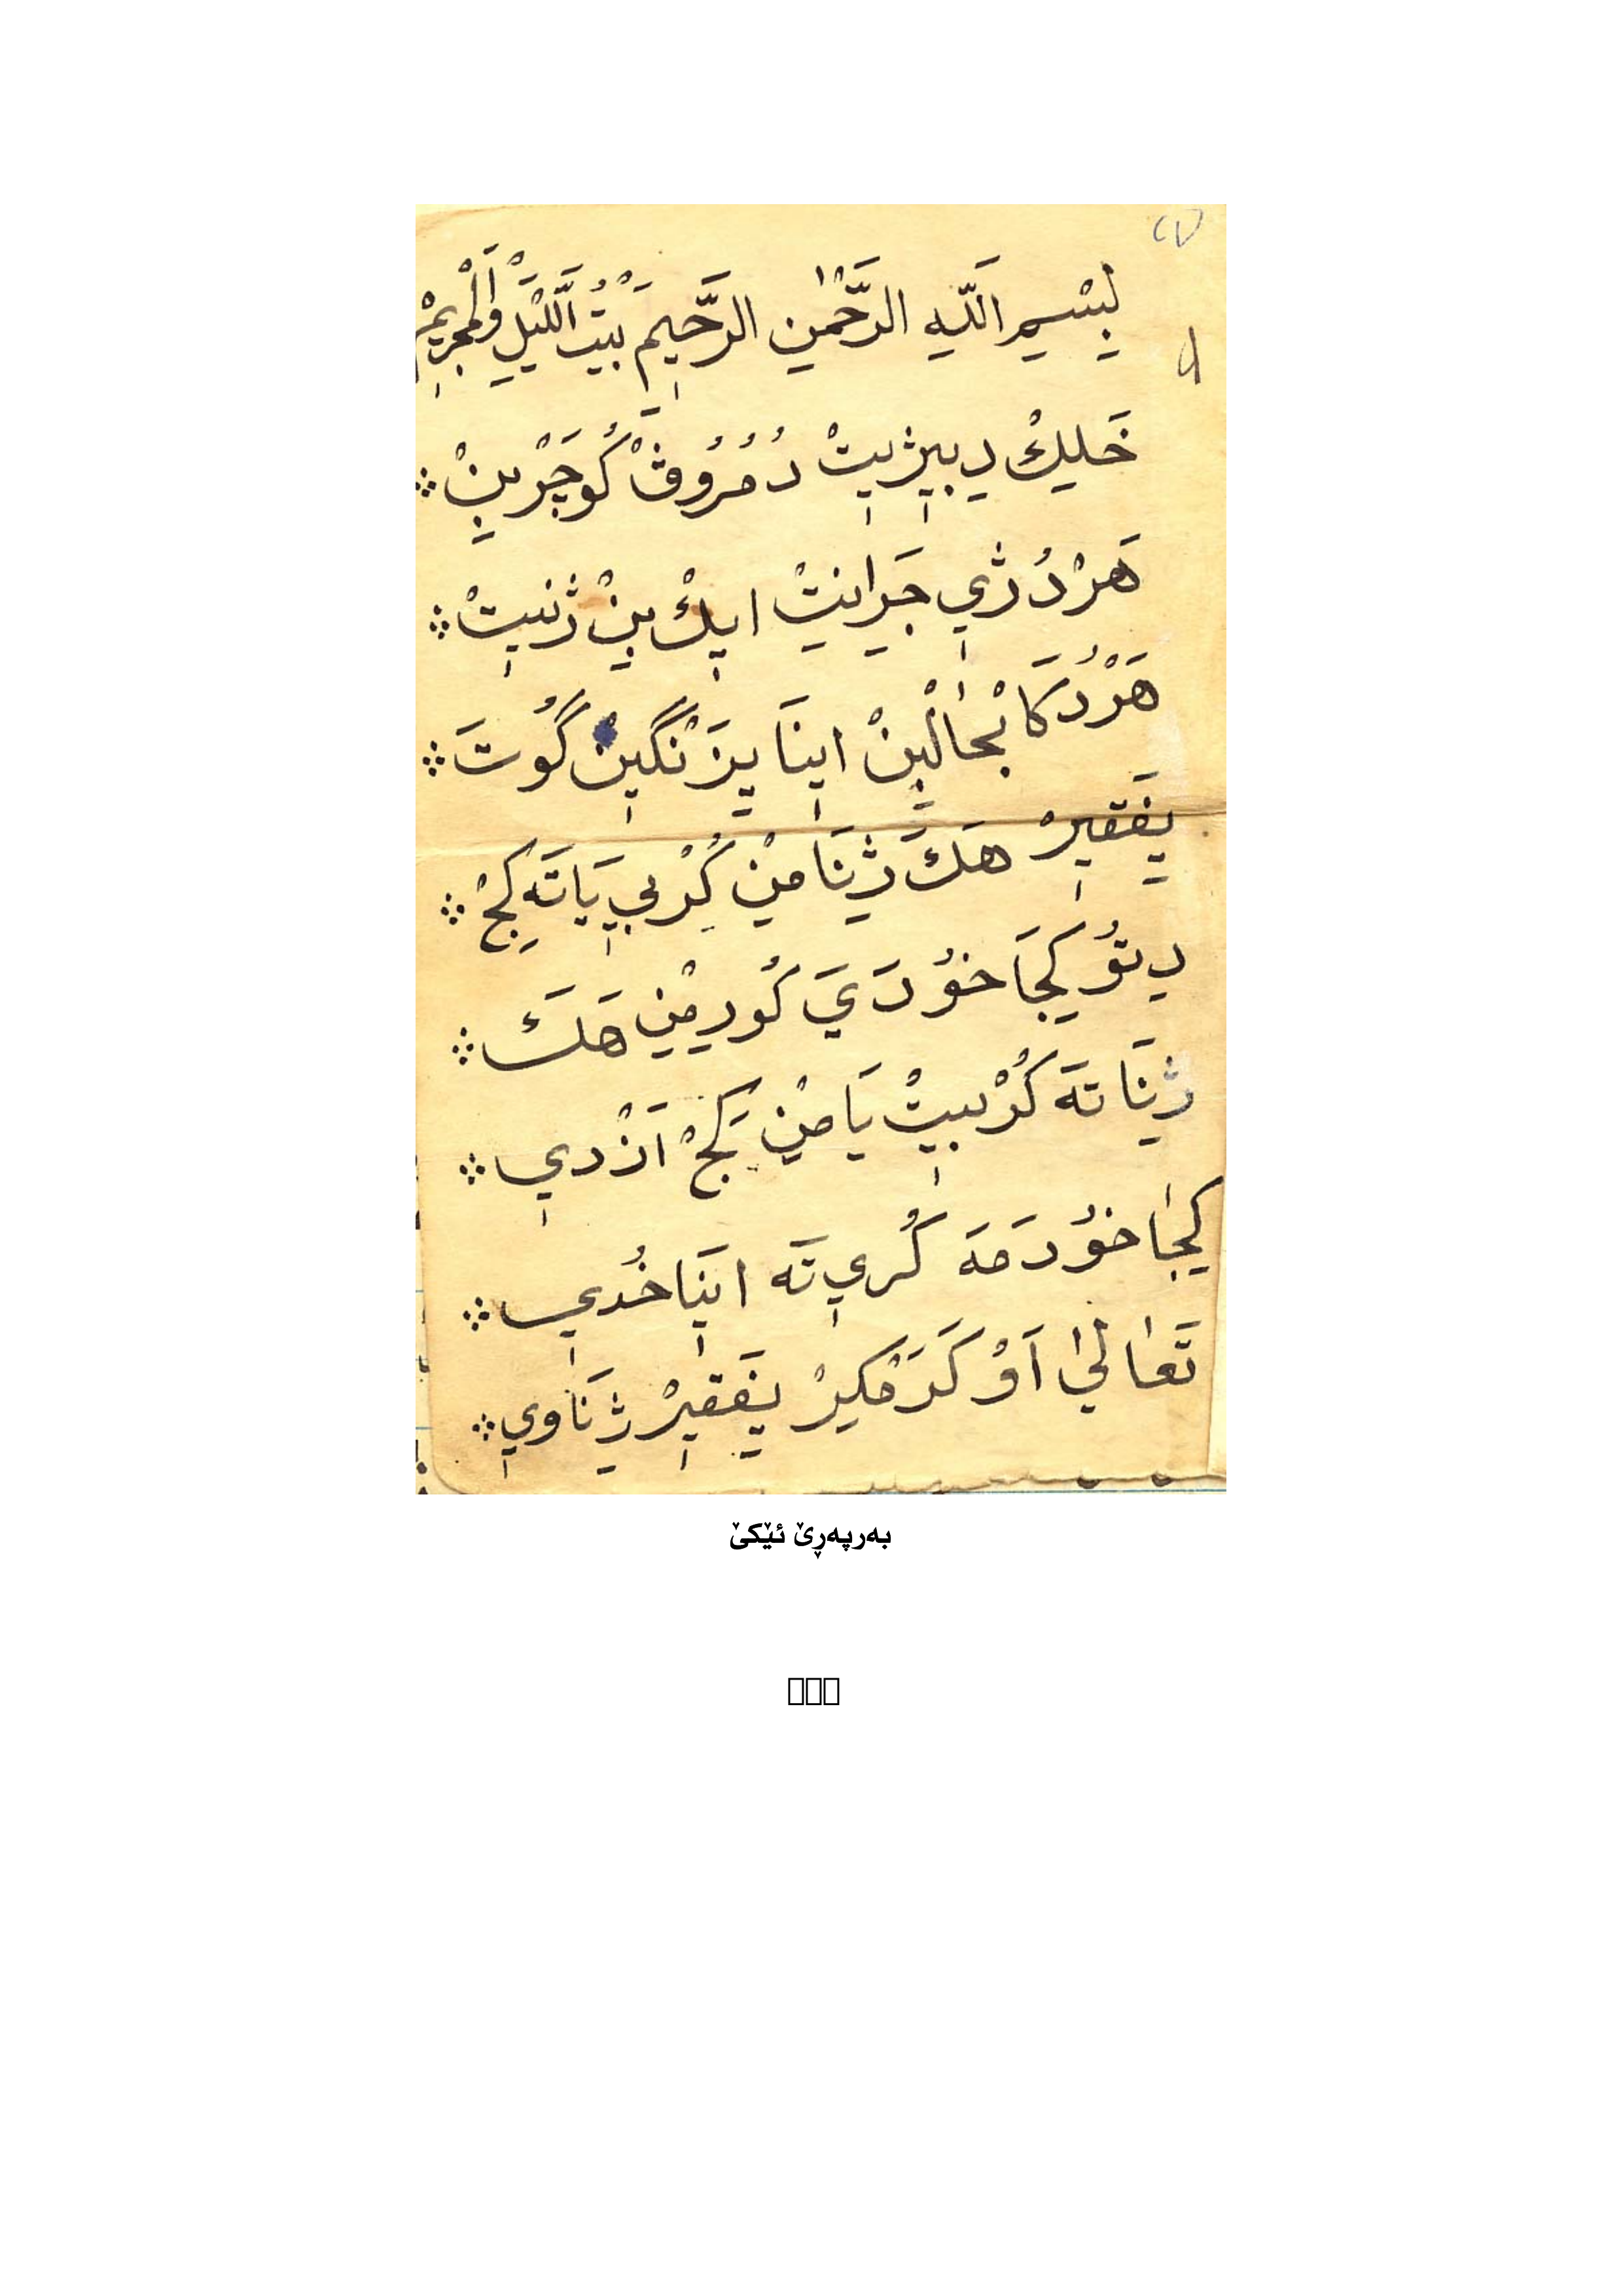 بِسْمِ اللَّهِ الرَّحْمٰنِ الرَّحِيمَ بَيْتُ اللَّيْلِ وَالْجَرِيمْ
خَلِكْ دِبِيژِيتْ دُ مُرُوڤْ كُوجَرْ بِنْ
هَرْ دُ ژِي جِيرَانِيتْ ايِكْ بِنْ ژنيِتْ
هَرْ دُ كَا بْحَالْبِنْ اينَا يِزَنْگِينْ گُوتَ
يِفَقِيرْ هَكَ ژِنَا مِنْ كُرْ بِي يَا تَه كِجْ
دِ تُو كِجَا خُو دَيَ كُورِ مِنِ هَكَ
ژِنَا تَه كُرْ بِيتْ يَا مِنْ كِجْ اَزْ دِي
كِيجَا خُو دَمَه كُرِي تَه اينَا خُدِي
تَعَالىٰ اَوْ كَرَمْ كِيرْ يِفَقِيرْ ژِنَا وِي
بەرپەڕێ ئێكێ